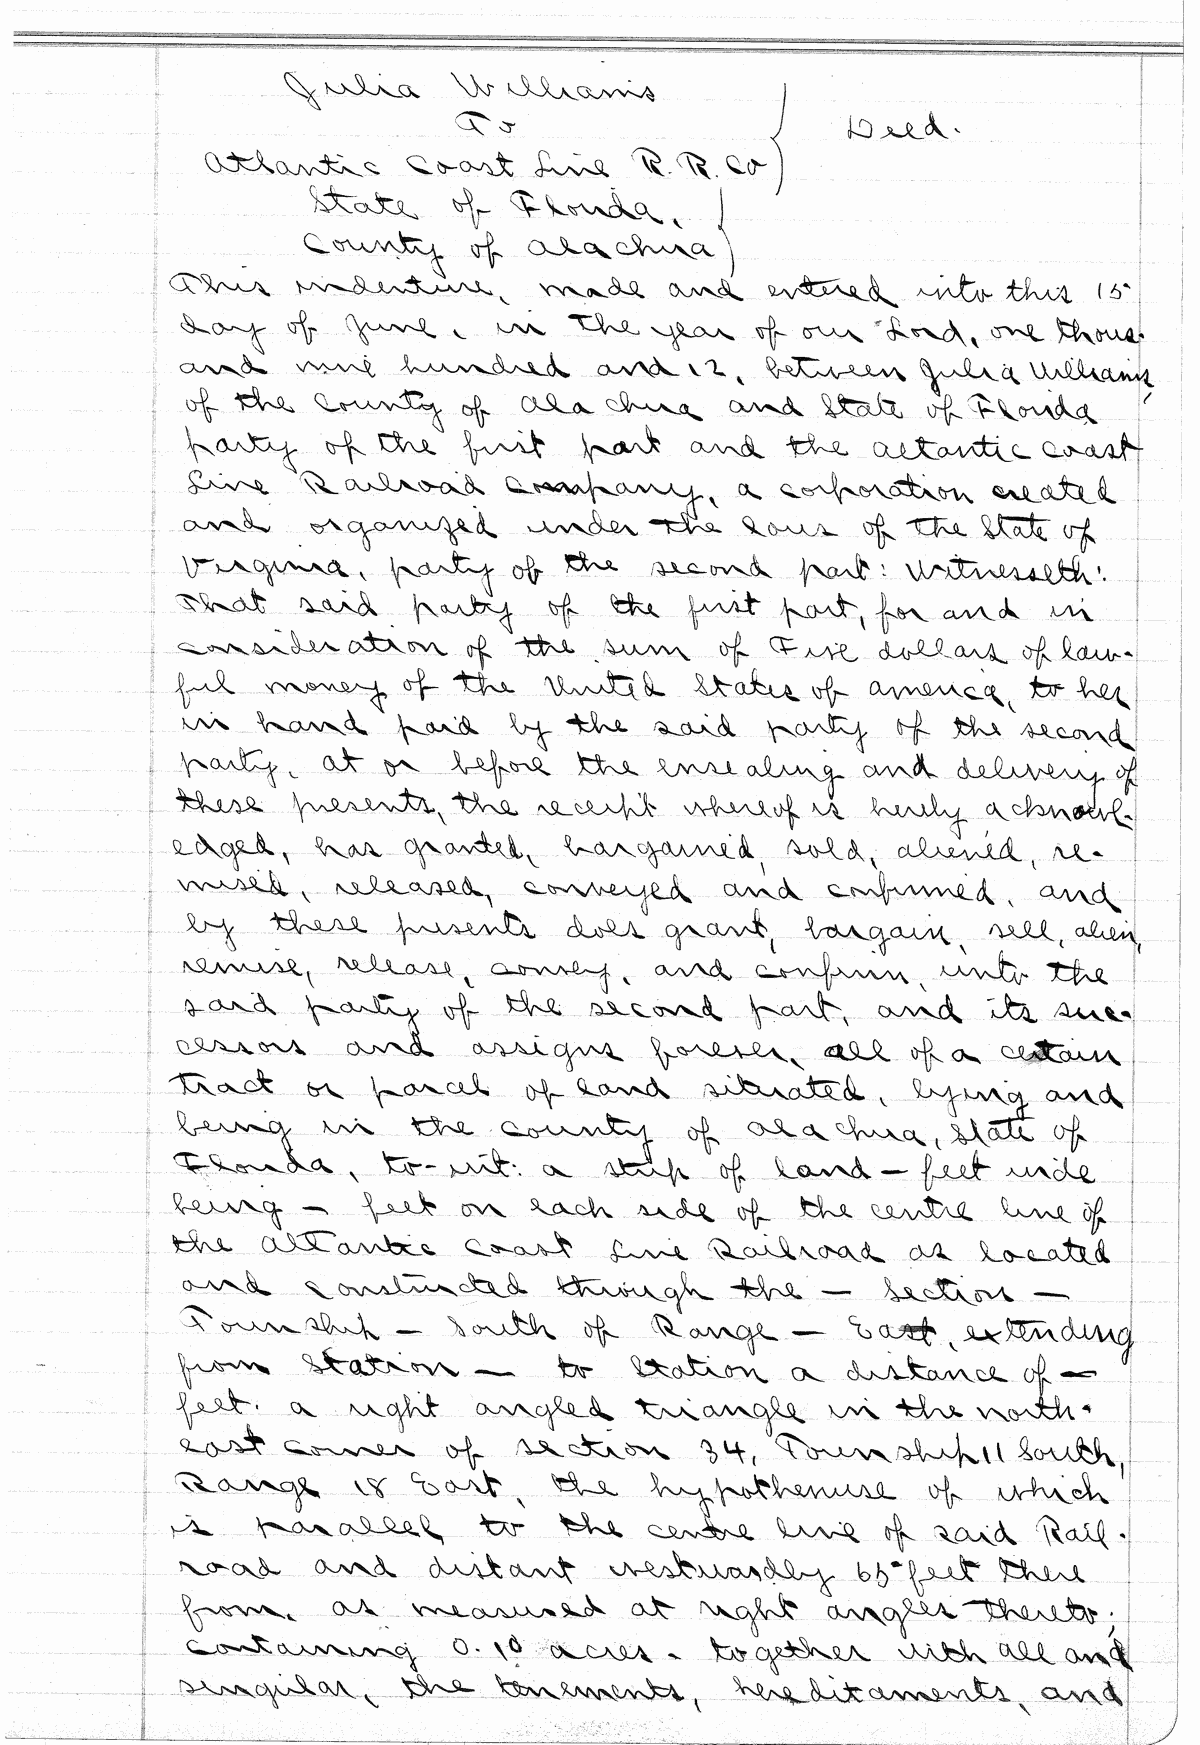 Julia Williams
To
Deed.
Atlantic Coast Line R. R. Co
State of Florida,
County of Alachua
This indenture, made and entered into this 15
day of June, in the year of our Lord, one thous-
and nine hundred and 12, between Julia Williams,
of the County of Alachua and State of Florida
party of the first part and the Altantic Coast
Line Railroad Company, a corporation created
and organized under the laws of the State of
Virginia, party of the second part: Witnesseth:
That said party of the first part, for and in
consideration of the sum of Five dollars of law-
ful money of the United States of America, to her
in hand paid by the said party of the second
party, at or before the ensealing and delivery of
these presents, the receipt whereof is hereby acknowl-
edged, has granted, bargained, sold, aliened, re-
mised, released, conveyed and confirmed, and
by these presents does grant, bargain, sell, alien,
remise, release, convey, and confirm, unto the
said party of the second part, and its suc-
cessors and assigns forever, all of a certain
tract or parcel of land situated, lying and
being in the County of Alachua, State of
Florida, to-wit: a strip of land — feet wide
being — feet on each side of the centre line of
the Altantic Coast Line Railroad as located
and constructed through the — Section —
Township — South of Range — East, extending
from Station — to Station a distance of —
feet. a right angled triangle in the north-
east corner of section 34, Township 11 South,
Range 18 East, the hypothenuse of which
is parallel to the centre line of said Rail-
road and distant westwardly 65 feet there
from, as measured at right angles thereto;
containing 0.10 acres. together with all and
singular, the tenements, hereditaments, and